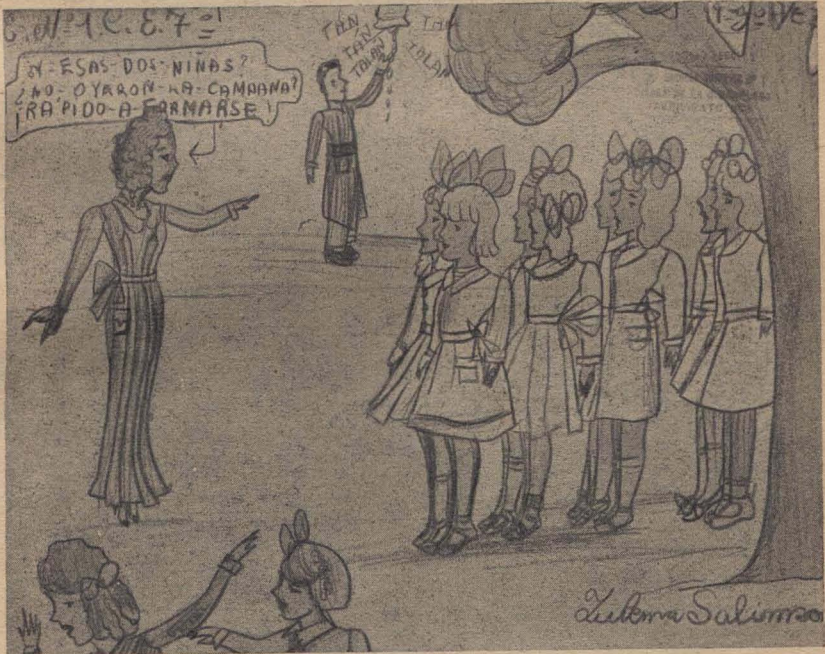 E. Nº 1. C. E. 7º
¿Y-ESAS-DOS-NIÑAS?
¿NO-OYERON-LA-CAMPANA?
¡RÁPIDO-A-FORMARSE!
TAN
TAN
TALAN
TAN
TALAN
Zulema